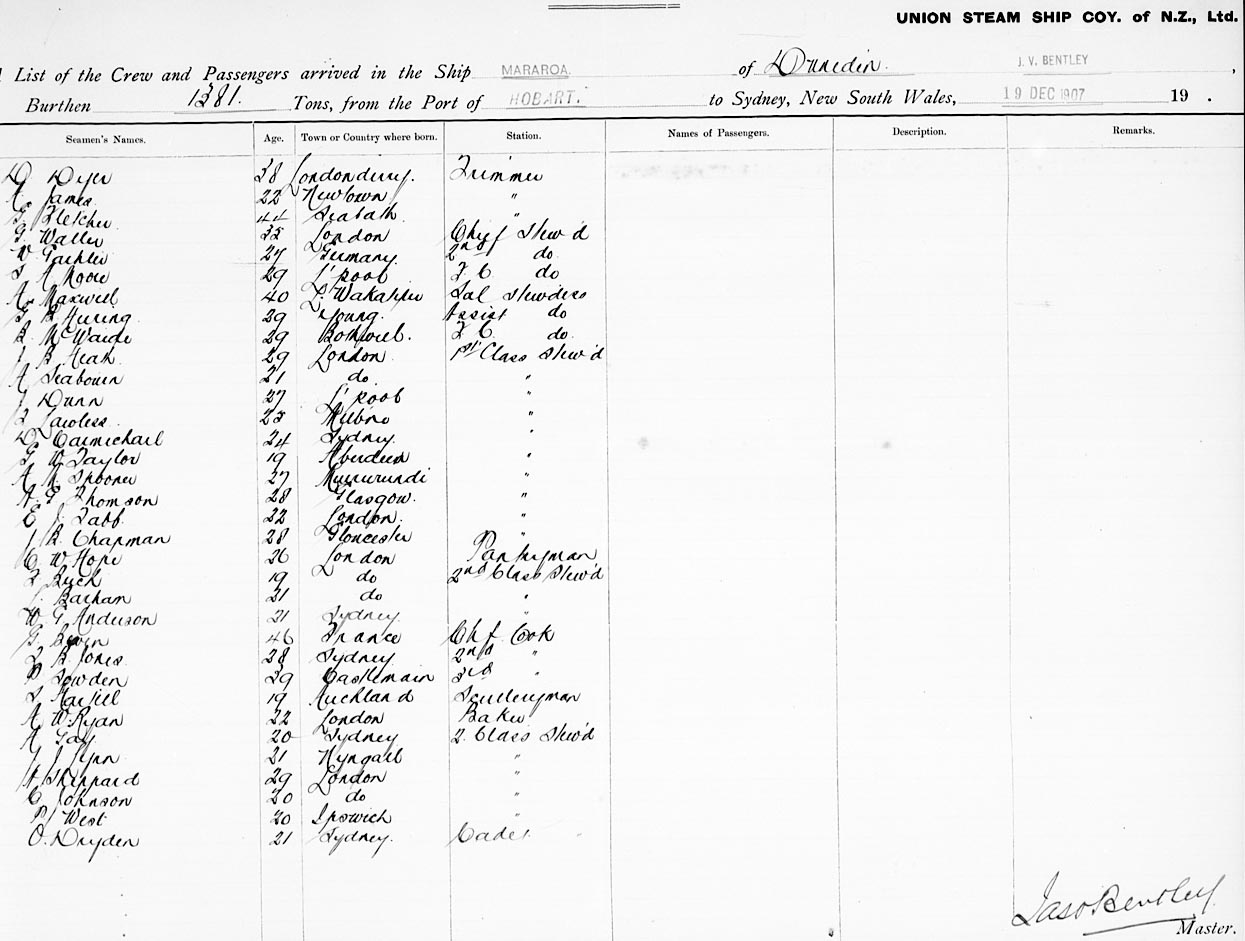 UNION STEAM SHIP COY. of N.Z., Ltd.
List of the Crew and Passengers arrived in the Ship MARAROA. of Dunedin. J. V. BENTLEY,
Burthen 1381. Tons, from the Port of HOBART. to Sydney, New South Wales, 19 DEC 1907 19 .
Seamen's Names. Age. Town or Country where born. Station. Names of Passengers. Description. Remarks.
D Dyer 38 Londonderry. Trimmer
James 22 Newtown "
Fletcher 44 "
G Waller 35 London Chief Stew'd
W 27 Germany. 2nd do
A Moore 29 L'pool F. C do
A Maxwell 40 L. Wakatipu Sal Stewdess
B Huring 29 Young. Assist do
29 Bothwell. F. C. do
J B Heath 29 London 1st Class Stew'd
A Seabourn 21 do "
J Dunn 27 L'pool "
Lawless "
D Carmichael 24 Sydney. "
G W Taylor 19 Aberdeen "
A M Spooner 27 Murrurundi "
A. G Thomson 28 Glasgow. "
E J. Tabb 22 London. "
J R. Chapman 28 Gloucester "
C W Hope 26 London Pantryman
19 do 2nd Class Stew'd
Barham 21 do "
W G Anderson 21 Sydney. "
G 46 France Chf Cook
B. Jones 28 Sydney 2nd "
Sowden 39 Castlemain 3rd "
19 Auckland Sculleryman
A W. Ryan 22 London Baker
A Gay 20 Sydney 2. Class Stew'd
21 Nyngall "
A Sheppard 29 London "
C Johnson 20 do "
West 20 Ipswich "
O. Dryden 21 Sydney. Cadet
Jas Bentley
Master.